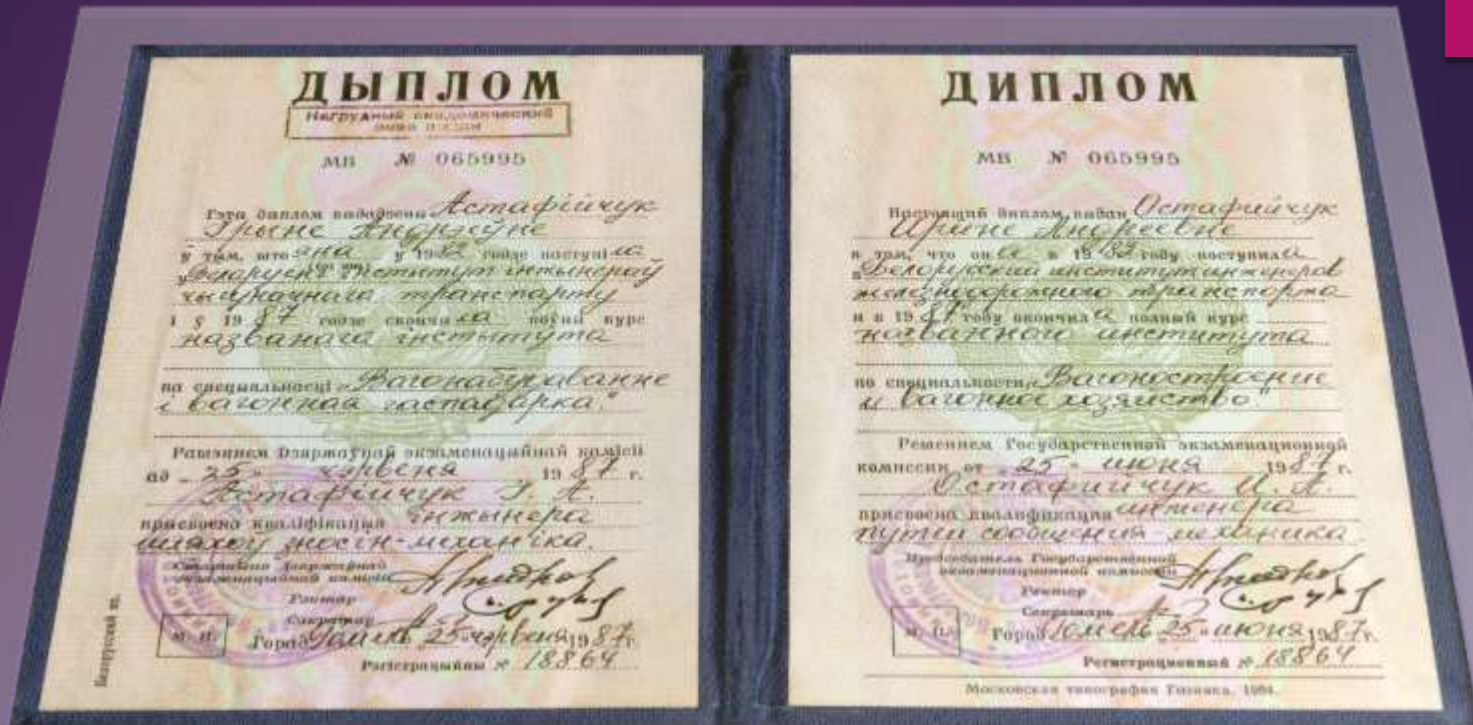 ДЫПЛОМ
Нагрудный академический
знак выдан
МВ № 065995
Гэты дыплом выдадзены Астафійчук
Ірыне Андрэеўне
ў тым, што яна ў 1982 годзе паступіла
у Беларускі інстытут інжынераў
чыгуначнага транспарту
і ў 1987 годзе скончыла поўны курс
названага інстытута
па спецыяльнасці „Вагонабудаванне
і вагонная гаспадарка."
Рашэннем Дзяржаўнай экзаменацыйнай камісіі
ад „25" чэрвеня 1987 г.
Астафійчук І. А.
прысвоена кваліфікацыя інжынера
шляхоў зносін-механіка.
Старшыня Дзяржаўнай
экзаменацыйнай камісіі
Рэктар
Сакратар
М. П.
Горад Гомель 25 чэрвеня 1987 г.
Рэгістрацыйны № 18864
Белорусский яз.
ДИПЛОМ
МВ № 065995
Настоящий диплом выдан Остафийчук
Ирине Андреевне
в том, что она в 1982 году поступила
в Белорусский институт инженеров
железнодорожного транспорта
и в 1987 году окончила полный курс
названного института
по специальности „Вагоностроение
и вагонное хозяйство"
Решением Государственной экзаменационной
комиссии от „25" июня 1987 г.
Остафийчук И. А.
присвоена квалификация инженера
путей сообщения-механика
Председатель Государственной
экзаменационной комиссии
Ректор
Секретарь
М. П.
Город Гомель 25 июня 1987 г.
Регистрационный № 18864
Московская типография Гознака. 1984.